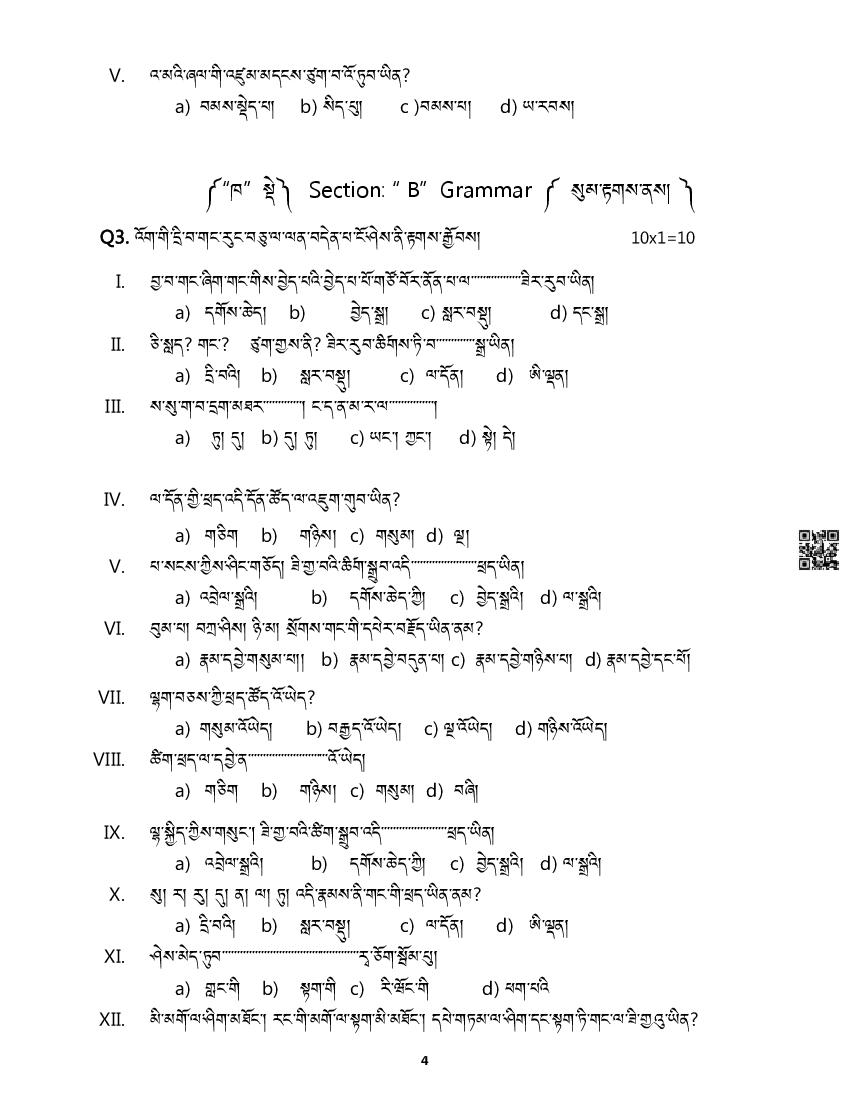 V. ཨ་མའི་ཞལ་གི་འཛུམ་མདངས་ཙུག་བ་འོ་ཏུབ་ཡིན?
a) བམས་སྙེད་པ། b) སིད་ཕུ། c )བམས་པ། d) ཡ་རབས།
༼“ཁ” སྡེ༽ Section: “ B” Grammar ༼ སུམ་རྟགས་ནས། ༽
Q3. འོག་གི་དྲི་བ་གང་རུང་བཅུ་ལ་ལན་བདེན་པ་ངོ་ཤེས་ནི་རྟགས་རྒྱོབས། 10x1=10
I. བྱ་བ་གང་ཞིག་གང་གིས་བྱེད་པའི་བྱེད་པ་པོ་གཙོ་བོར་ནོན་པ་ལ................ཟིར་རུབ་ཡིན།
a) དགོས་ཆེད། b) བྱེད་སྒྲ། c) སླར་བསྡུ། d) དང་སྒྲ།
II. ཅི་སླད? གང་? ཙུག་གྱས་ནི? ཟིར་རུབ་ཚིགས་ཏི་བ............སྒྲ་ཡིན།
a) དྲི་བའི། b) སླར་བསྡུ། c) ལ་དོན། d) ཨི་ལྡན།
III. ས་སུ་ག་བ་དྲག་མཐར............། ང་ད་ན་མ་ར་ལ..............།
a) ཏུ། དུ། b) དུ། ཏུ། c) ཡང་། ཀྱང་། d) སྟེ། དེ།
IV. ལ་དོན་གྱི་ཕྲད་འདི་དོན་ཚོད་ལ་འཇུག་གུབ་ཡིན?
a) གཅིག b) གཉིས། c) གསུམ། d) ལྔ།
V. པ་སངས་ཀྱིས་ཤིང་གཅོད། ཟི་གྱ་བའི་ཚིག་སྒྲུབ་འདི.....................ཕྲད་ཡིན།
a) འབྲེལ་སྒྲའི། b) དགོས་ཆེད་ཀྱི། c) བྱེད་སྒྲའི། d) ལ་སྒྲའི།
VI. བུམ་པ། བཀྲ་ཤིས། ཉི་མ། སྲོགས་གང་གི་དཔེར་བརྗོད་ཡིན་ནམ?
a) རྣམ་དབྱེ་གསུམ་པ།། b) རྣམ་དབྱེ་བདུན་པ། c) རྣམ་དབྱེ་གཉིས་པ། d) རྣམ་དབྱེ་དང་པོ།
VII. ལྷག་བཅས་ཀྱི་ཕྲད་ཚོད་འོ་ཡེད?
a) གསུམ་འོ་ཡེད། b) བརྒྱད་འོ་ཡེད། c) ལྔ་འོ་ཡེད། d) གཉིས་འོ་ཡེད།
VIII. ཚིག་ཕྲད་ལ་དབྱེ་ན..........................འོ་ཡེད།
a) གཅིག b) གཉིས། c) གསུམ། d) བཞི།
IX. ལྷ་སྐྱིད་ཀྱིས་གསུང་། ཟི་གྱ་བའི་ཚིག་སྒྲུབ་འདི.....................ཕྲད་ཡིན།
a) འབྲེལ་སྒྲའི། b) དགོས་ཆེད་ཀྱི། c) བྱེད་སྒྲའི། d) ལ་སྒྲའི།
X. སུ། ར། རུ། དུ། ན། ལ། ཏུ། འདི་རྣམས་ནི་གང་གི་ཕྲད་ཡིན་ནམ?
a) དྲི་བའི། b) སླར་བསྡུ། c) ལ་དོན། d) ཨི་ལྡན།
XI. ཤེས་མེད་ཏུབ.............................................རྭ་ཅོག་སྦོམ་ཕུ།
a) གླང་གི b) སྟག་གི c) རི་བོང་གི d) ཕག་པའི
XII. མི་མགོ་ལ་ཤིག་མཐོང་། རང་གི་མགོ་ལ་སྟག་མི་མཐོང་། དཔེ་གཏམ་ལ་ཤིག་དང་སྟག་ཏི་གང་ལ་ཟི་གྱའུ་ཡིན?
4